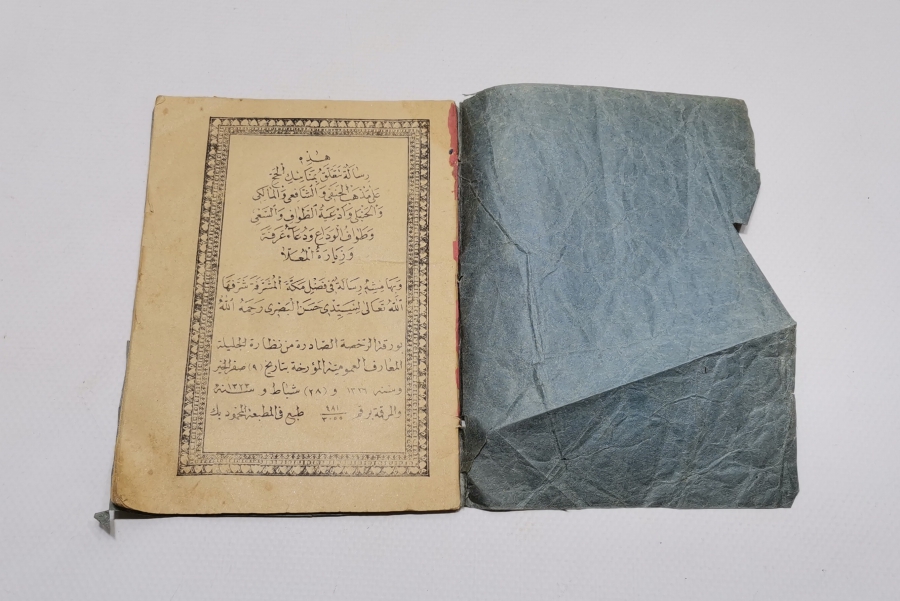 هذه
رسالة تتعلق بمناسك الحج
على مذهب الحنفى والشافعى والمالكى
والحنبلى وادعية الطواف والسعى
وطواف الوداع ودعاء عرفة
وزيارة المعلا
وبهامشه رسالة فى فضل مكة المشرفة شرفها
الله تعالى لسيدى حسن البصرى رحمه الله
الرخصة الصادرة من نظارة الجليلة
المعارف العمومية المؤرخة بتاريخ (٩) صفر الخير
وسنه ١٣٢٦ و (٢٨) شباط و سنة ١٣٢٣
والمرقمة برقم ٩٨١ طبع فى المطبعة المحمود بك